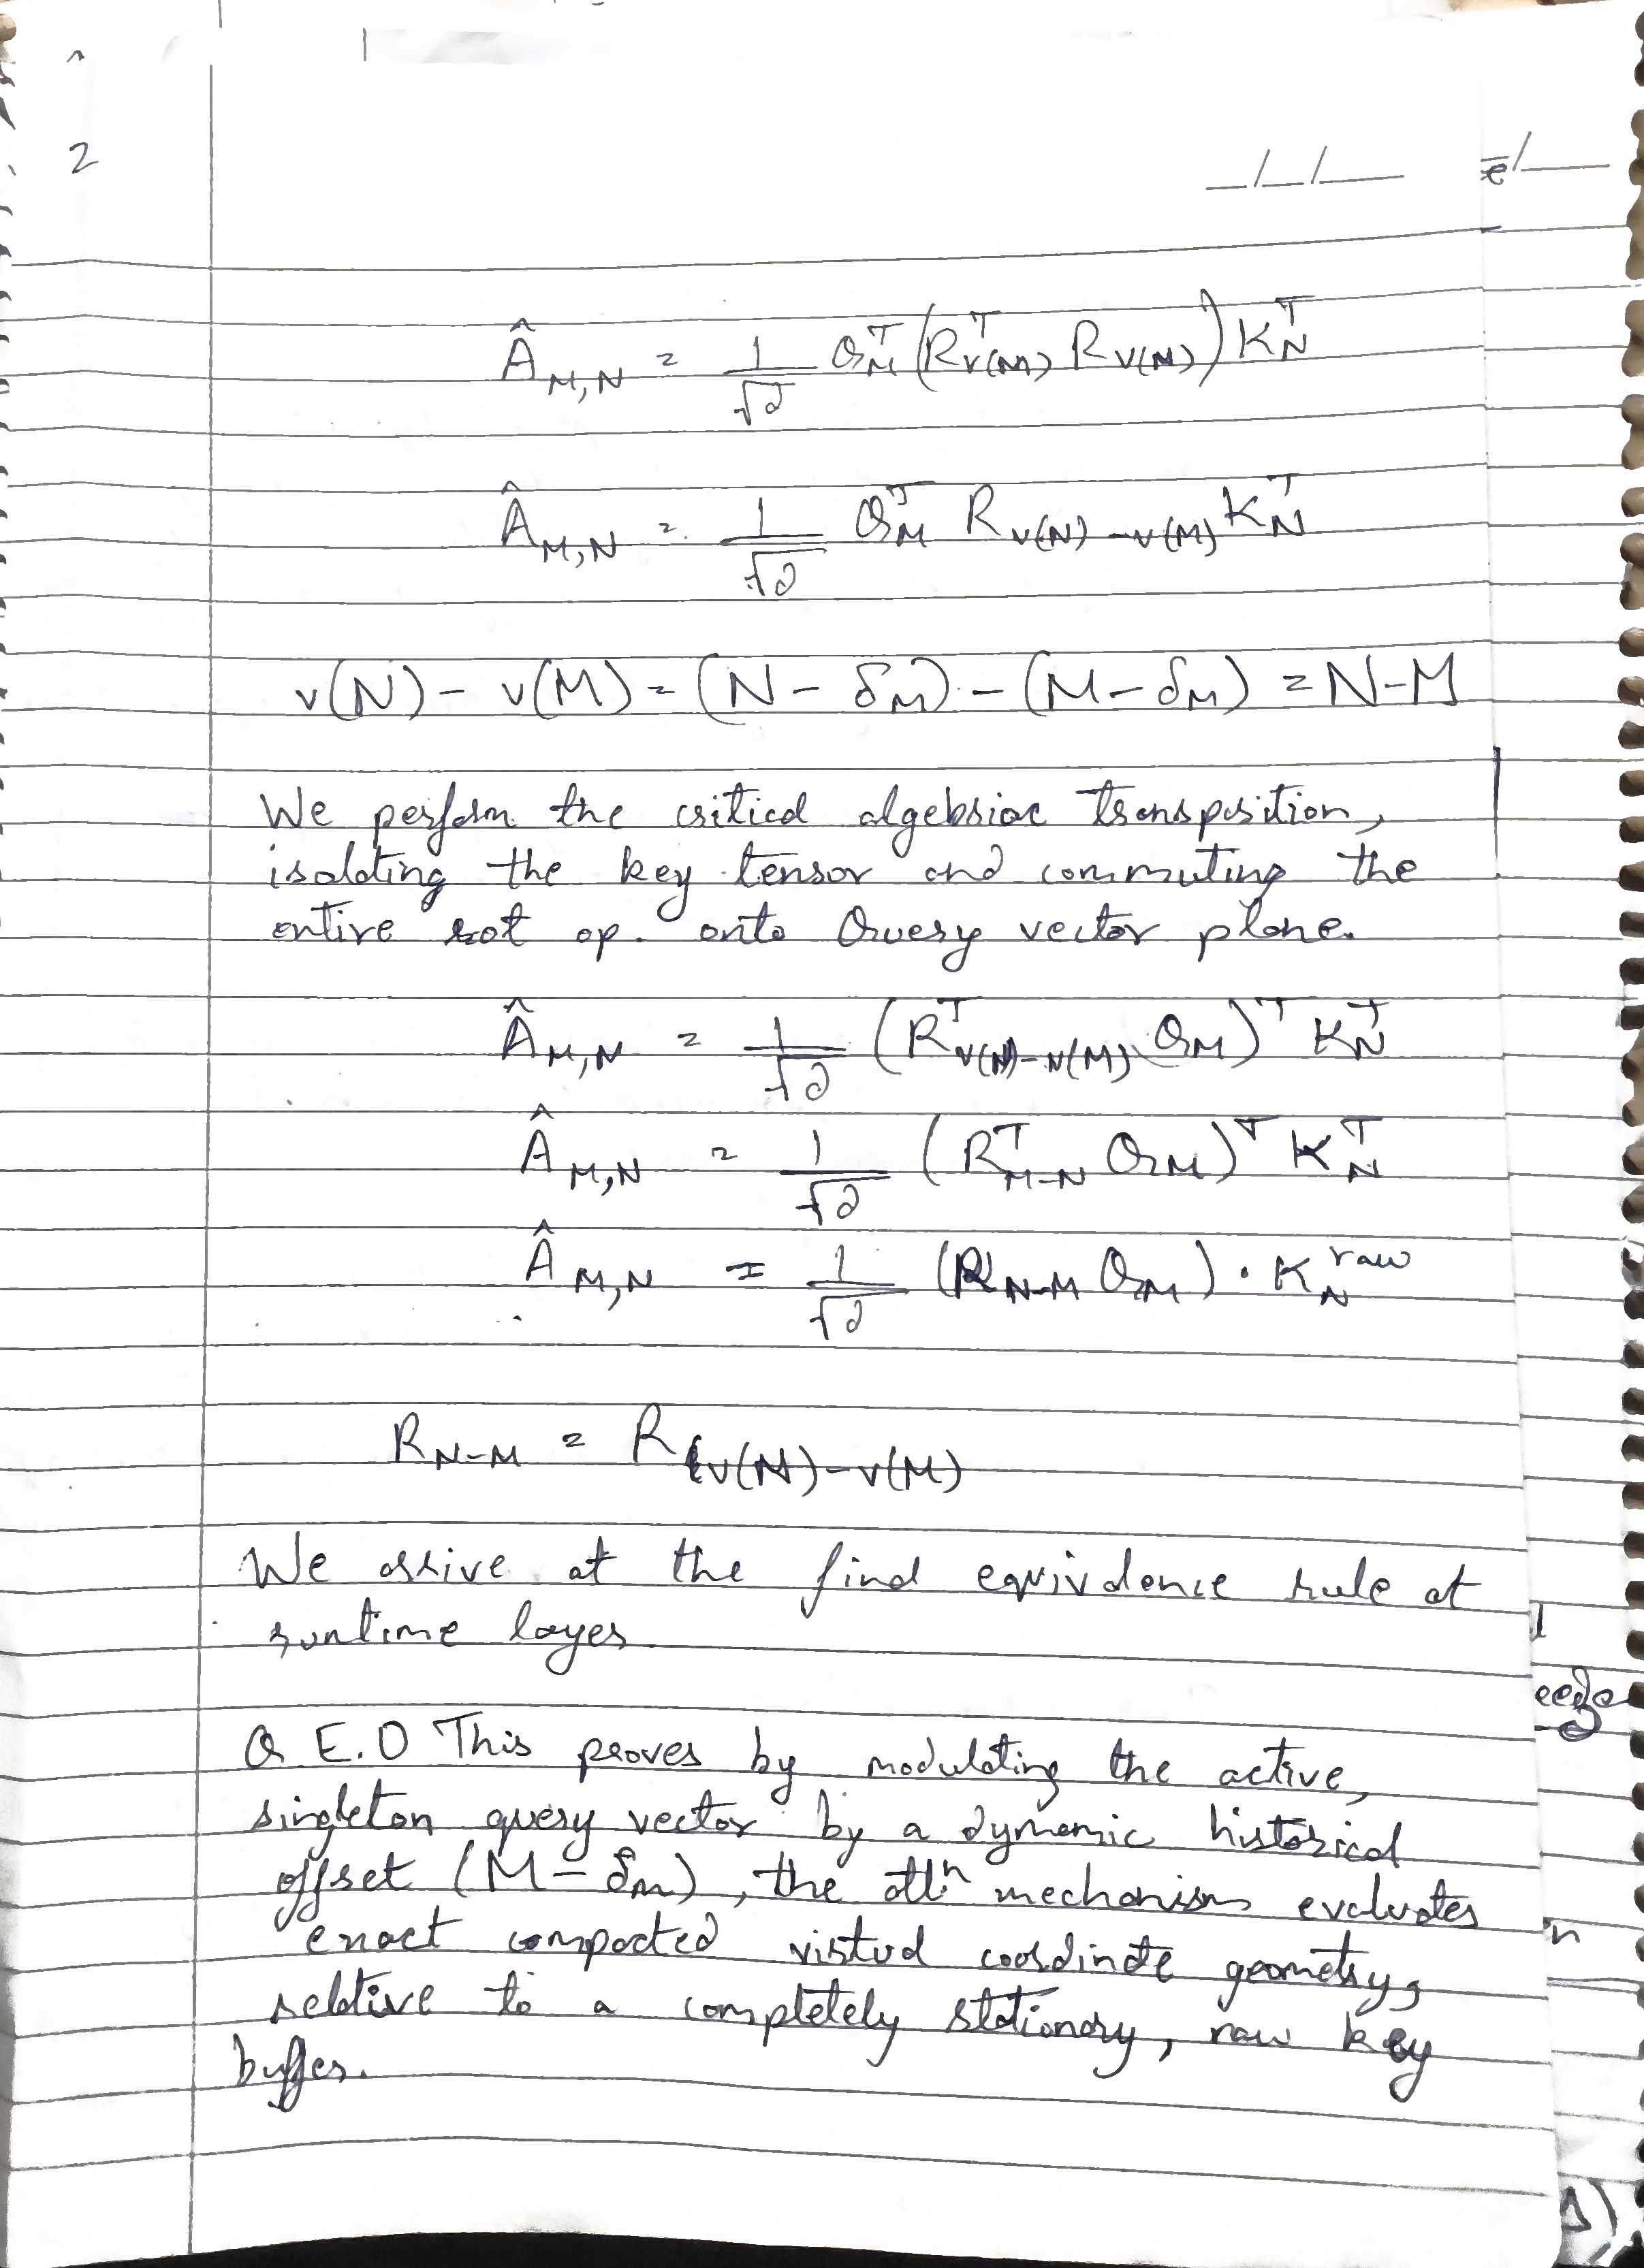 2
_/_/_
Â_{M,N} = 1/√d Q_M^T (R_{v(M)}^T R_{v(N)}) K_N^T
Â_{M,N} = 1/√d Q_M^T R_{v(N)-v(M)} K_N^T
v(N) - v(M) = (N - δ_M) - (M - δ_M) = N-M
We perform the critical algebraic transposition,
isolating the key tensor and commuting the
entire rot op. onto Query vector plane.
Â_{M,N} = 1/√d (R_{v(N)-v(M)}^T Q_M)^T K_N^T
Â_{M,N} = 1/√d (R_{M-N}^T Q_M)^T K_N^T
Â_{M,N} = 1/√d (R_{N-M} Q_M) · K_N^{raw}
R_{N-M} = R_{v(N)-v(M)}
We arrive at the final equivalence rule at
runtime layer
Q.E.D This proves by modulating the active,
singleton query vector by a dynamic historical
offset (M - δ_m), the attn mechanism evaluates
exact compacted virtual coordinate geometry,
relative to a completely stationary, raw key
buffer.